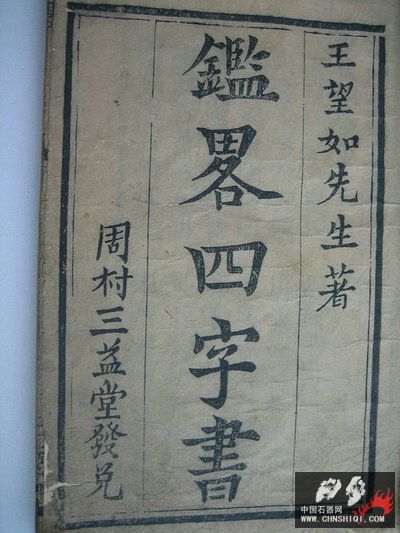 王望如先生著
鑑畧四字書
周村三益堂發兑
中国石器网
WWW.CHNSHIQI.COM